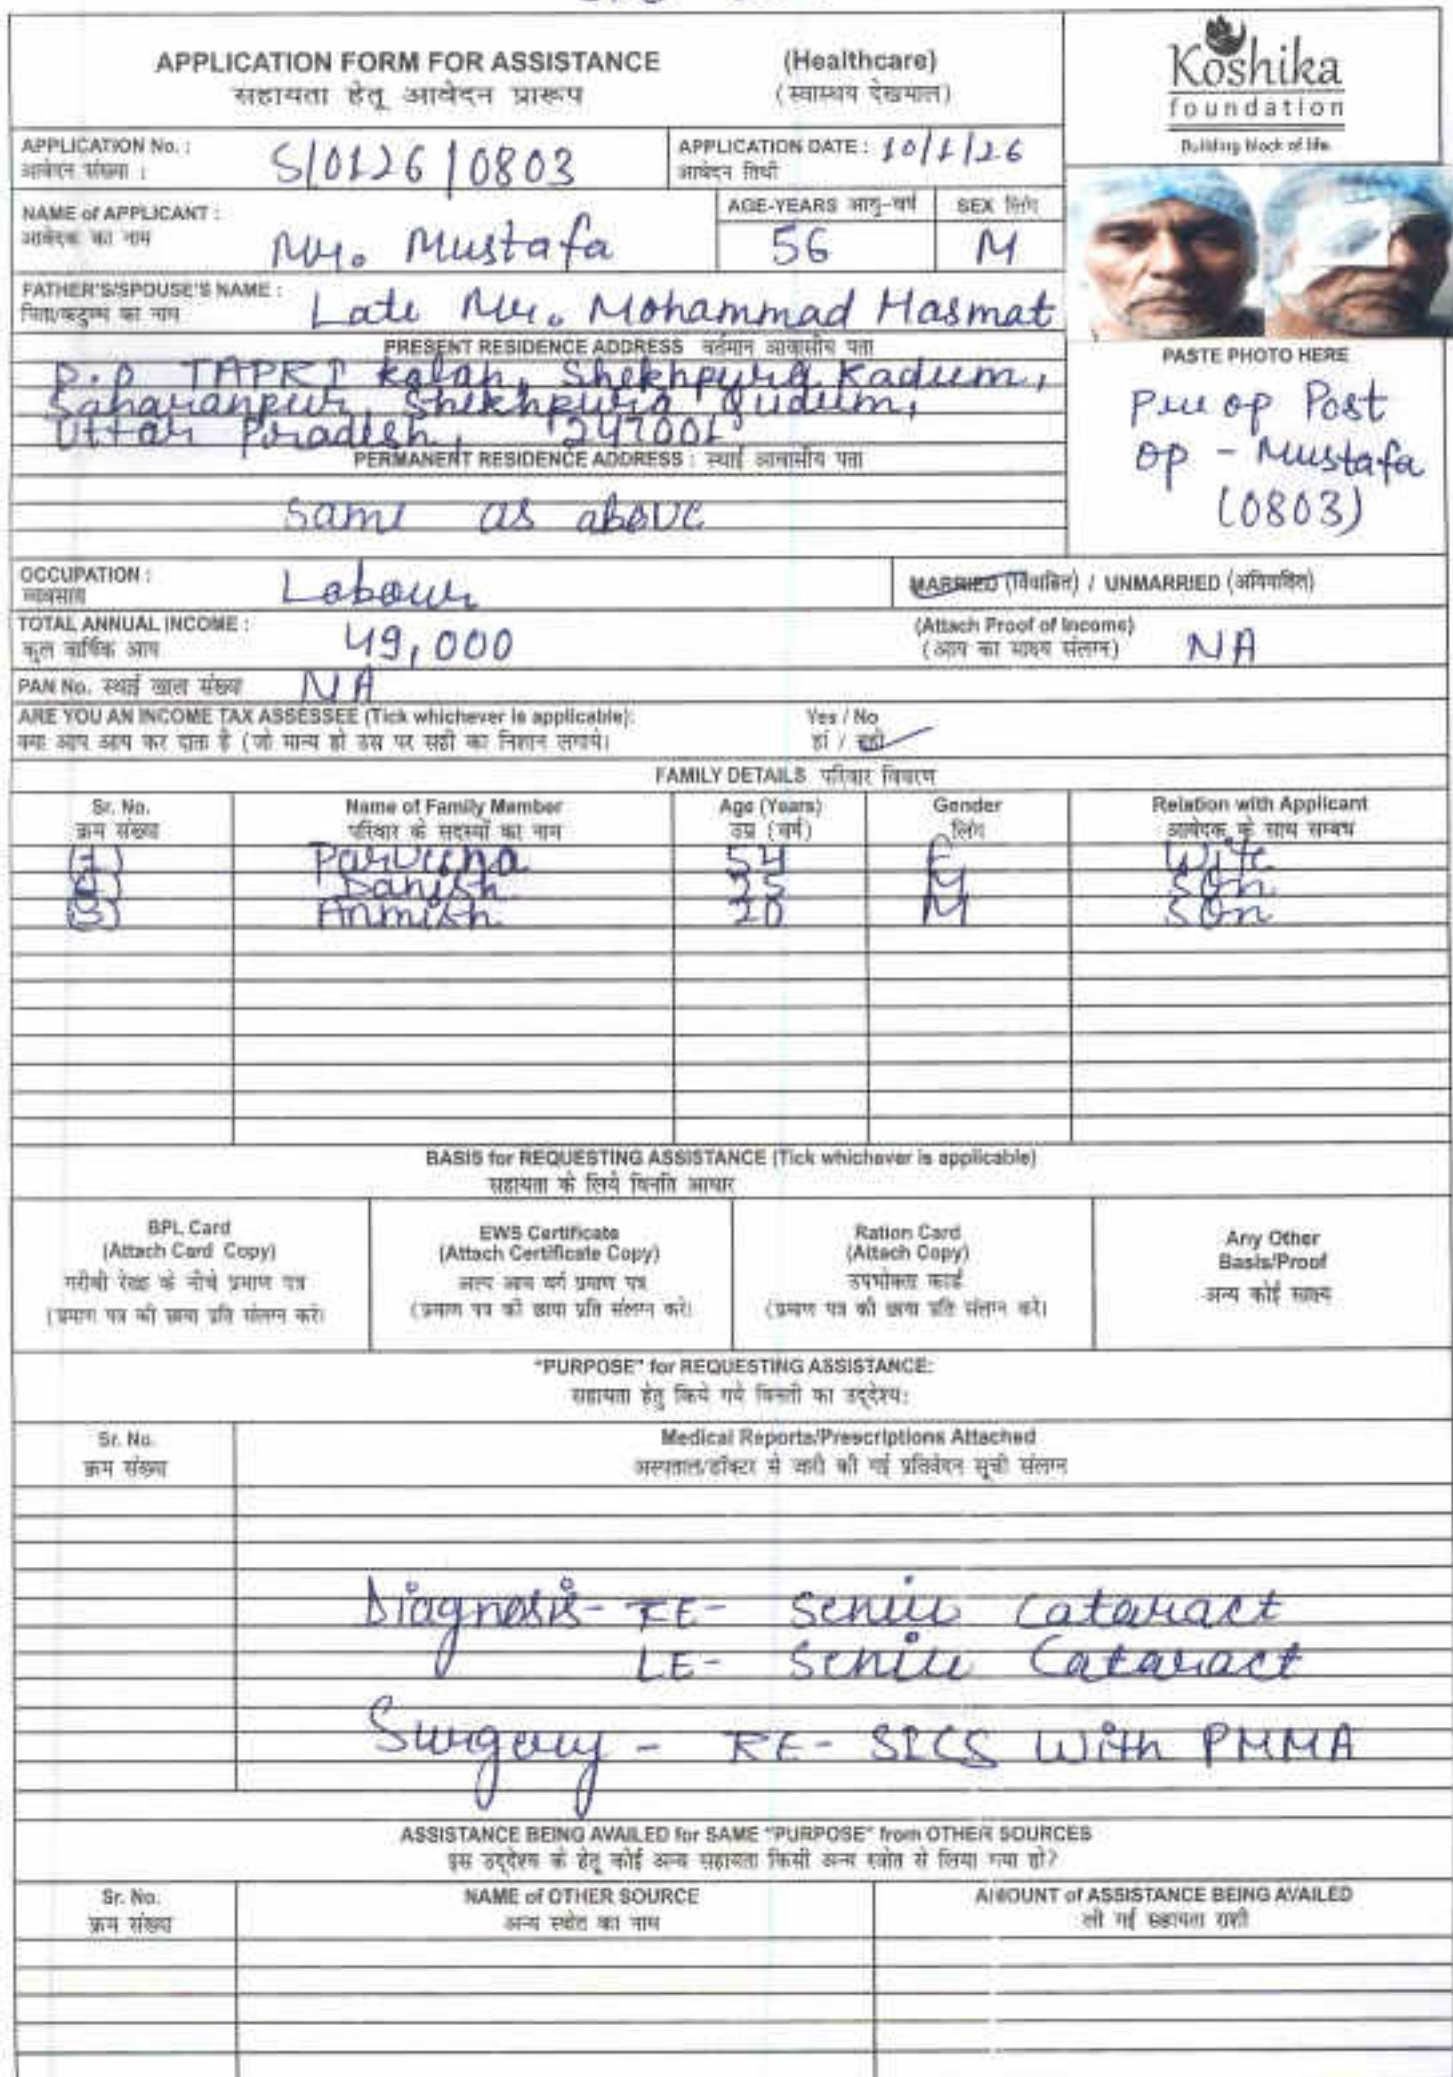 APPLICATION FORM FOR ASSISTANCE
(Healthcare)
सहायता हेतू आवेदन प्रारूप
(स्वास्थय देखभाल)
Koshika
foundation
Building block of life.
APPLICATION No. :
आवेदन संख्या :
S/0126/0803
APPLICATION DATE : 10/1/26
आवेदन तिथी
NAME of APPLICANT :
आवेदक का नाम
Mr. Mustafa
AGE-YEARS आयु-वर्ष
56
SEX लिंग
M
FATHER'S/SPOUSE'S NAME :
पिता/कटुम्ब का नाम
Late Mr. Mohammad Hasmat
PRESENT RESIDENCE ADDRESS वर्तमान आवासीय पता
TAPRI Kalan, Shekhpura Kadum,
Saharanpur, Shekhpura Qudum,
Uttar Pradesh, 247001
PERMANENT RESIDENCE ADDRESS : स्थाई आवासीय पता
same as above
PASTE PHOTO HERE
Pre op Post
op - Mustafa
(0803)
OCCUPATION :
व्यवसाय
Labour
MARRIED (विवाहित) / UNMARRIED (अविवाहित)
TOTAL ANNUAL INCOME :
कुल वार्षिक आय
49,000
(Attach Proof of Income)
(आय का साक्ष्य संलग्न)
NA
PAN No. स्थाई खाता संख्या NA
ARE YOU AN INCOME TAX ASSESSEE (Tick whichever is applicable): Yes / No
क्या आप आय कर दाता है (जो मान्य हो उस पर सही का निशान लगाये। हां / नहीं
FAMILY DETAILS परिवार विवरण
Sr. No. Name of Family Member Age (Years) Gender Relation with Applicant
क्रम संख्या परिवार के सदस्यों का नाम उम्र (वर्ष) लिंग आवेदक के साथ सम्बध
(1) Parveena 54 F Wife
(2) Danish 25 M Son
(3) Anmish 20 M Son
BASIS for REQUESTING ASSISTANCE (Tick whichever is applicable)
सहायता के लिये विनति आधार
BPL Card
(Attach Card Copy)
गरीबी रेखा के नीचे प्रमाण पत्र
(प्रमाण पत्र की छाया प्रति संलग्न करे।
EWS Certificate
(Attach Certificate Copy)
अल्प आय वर्ग प्रमाण पत्र
(प्रमाण पत्र की छाया प्रति संलग्न करे।
Ration Card
(Attach Copy)
उपभोक्ता कार्ड
(प्रमाण पत्र की छाया प्रति संलग्न करे।
Any Other
Basis/Proof
अन्य कोई साक्ष्य
"PURPOSE" for REQUESTING ASSISTANCE:
सहायता हेतु किये गये विनती का उद्देश्य:
Sr. No. Medical Reports/Prescriptions Attached
क्रम संख्या अस्पताल/डॉक्टर से जारी की गई प्रतिवेदन सूची संलग्न
Diagnosis- RE- Senile Cataract
LE- Senile Cataract
Surgery - RE- SICS with PMMA
ASSISTANCE BEING AVAILED for SAME "PURPOSE" from OTHER SOURCES
इस उद्देश्य के हेतू कोई अन्य सहायता किसी अन्य स्त्रोत से लिया गया हो?
Sr. No. NAME of OTHER SOURCE AMOUNT of ASSISTANCE BEING AVAILED
क्रम संख्या अन्य स्त्रोत का नाम ली गई सहायता राशी